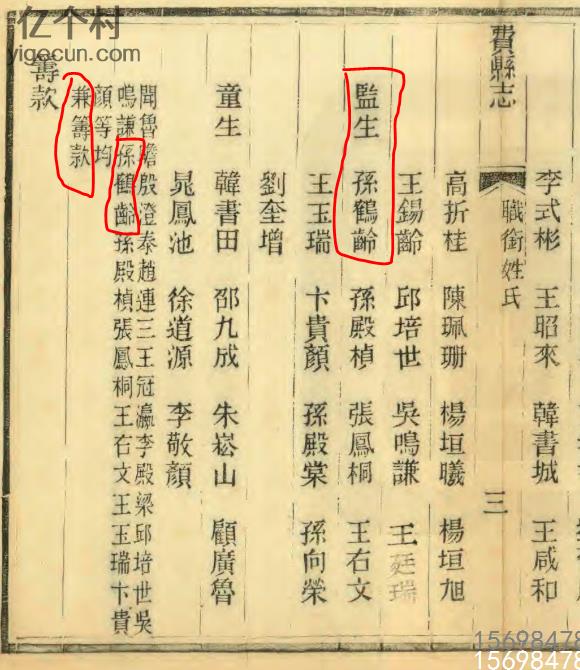 李式彬 王昭來 韓書城 王咸和
費縣志 職銜姓氏 三
高折桂 陳珮珊 楊垣曦 楊垣旭
王錫齡 邱培世 吳鳴謙 王廷瑞
監生 孫鶴齡 孫殿楨 張鳳桐 王右文
王玉瑞 卞貴顏 孫殿棠 孫向榮
劉奎增
童生 韓書田 邵九成 朱崧山 顧廣魯
晁鳳池 徐道源 李敬顏
聞魯瞻殷澄泰趙連三王冠瀛李殿梁邱培世吳
鳴謙孫鶴齡孫殿楨張鳳桐王右文王玉瑞卞貴
顏等均
兼籌款
籌款
亿个村
yigecun.com
15698478
15698478